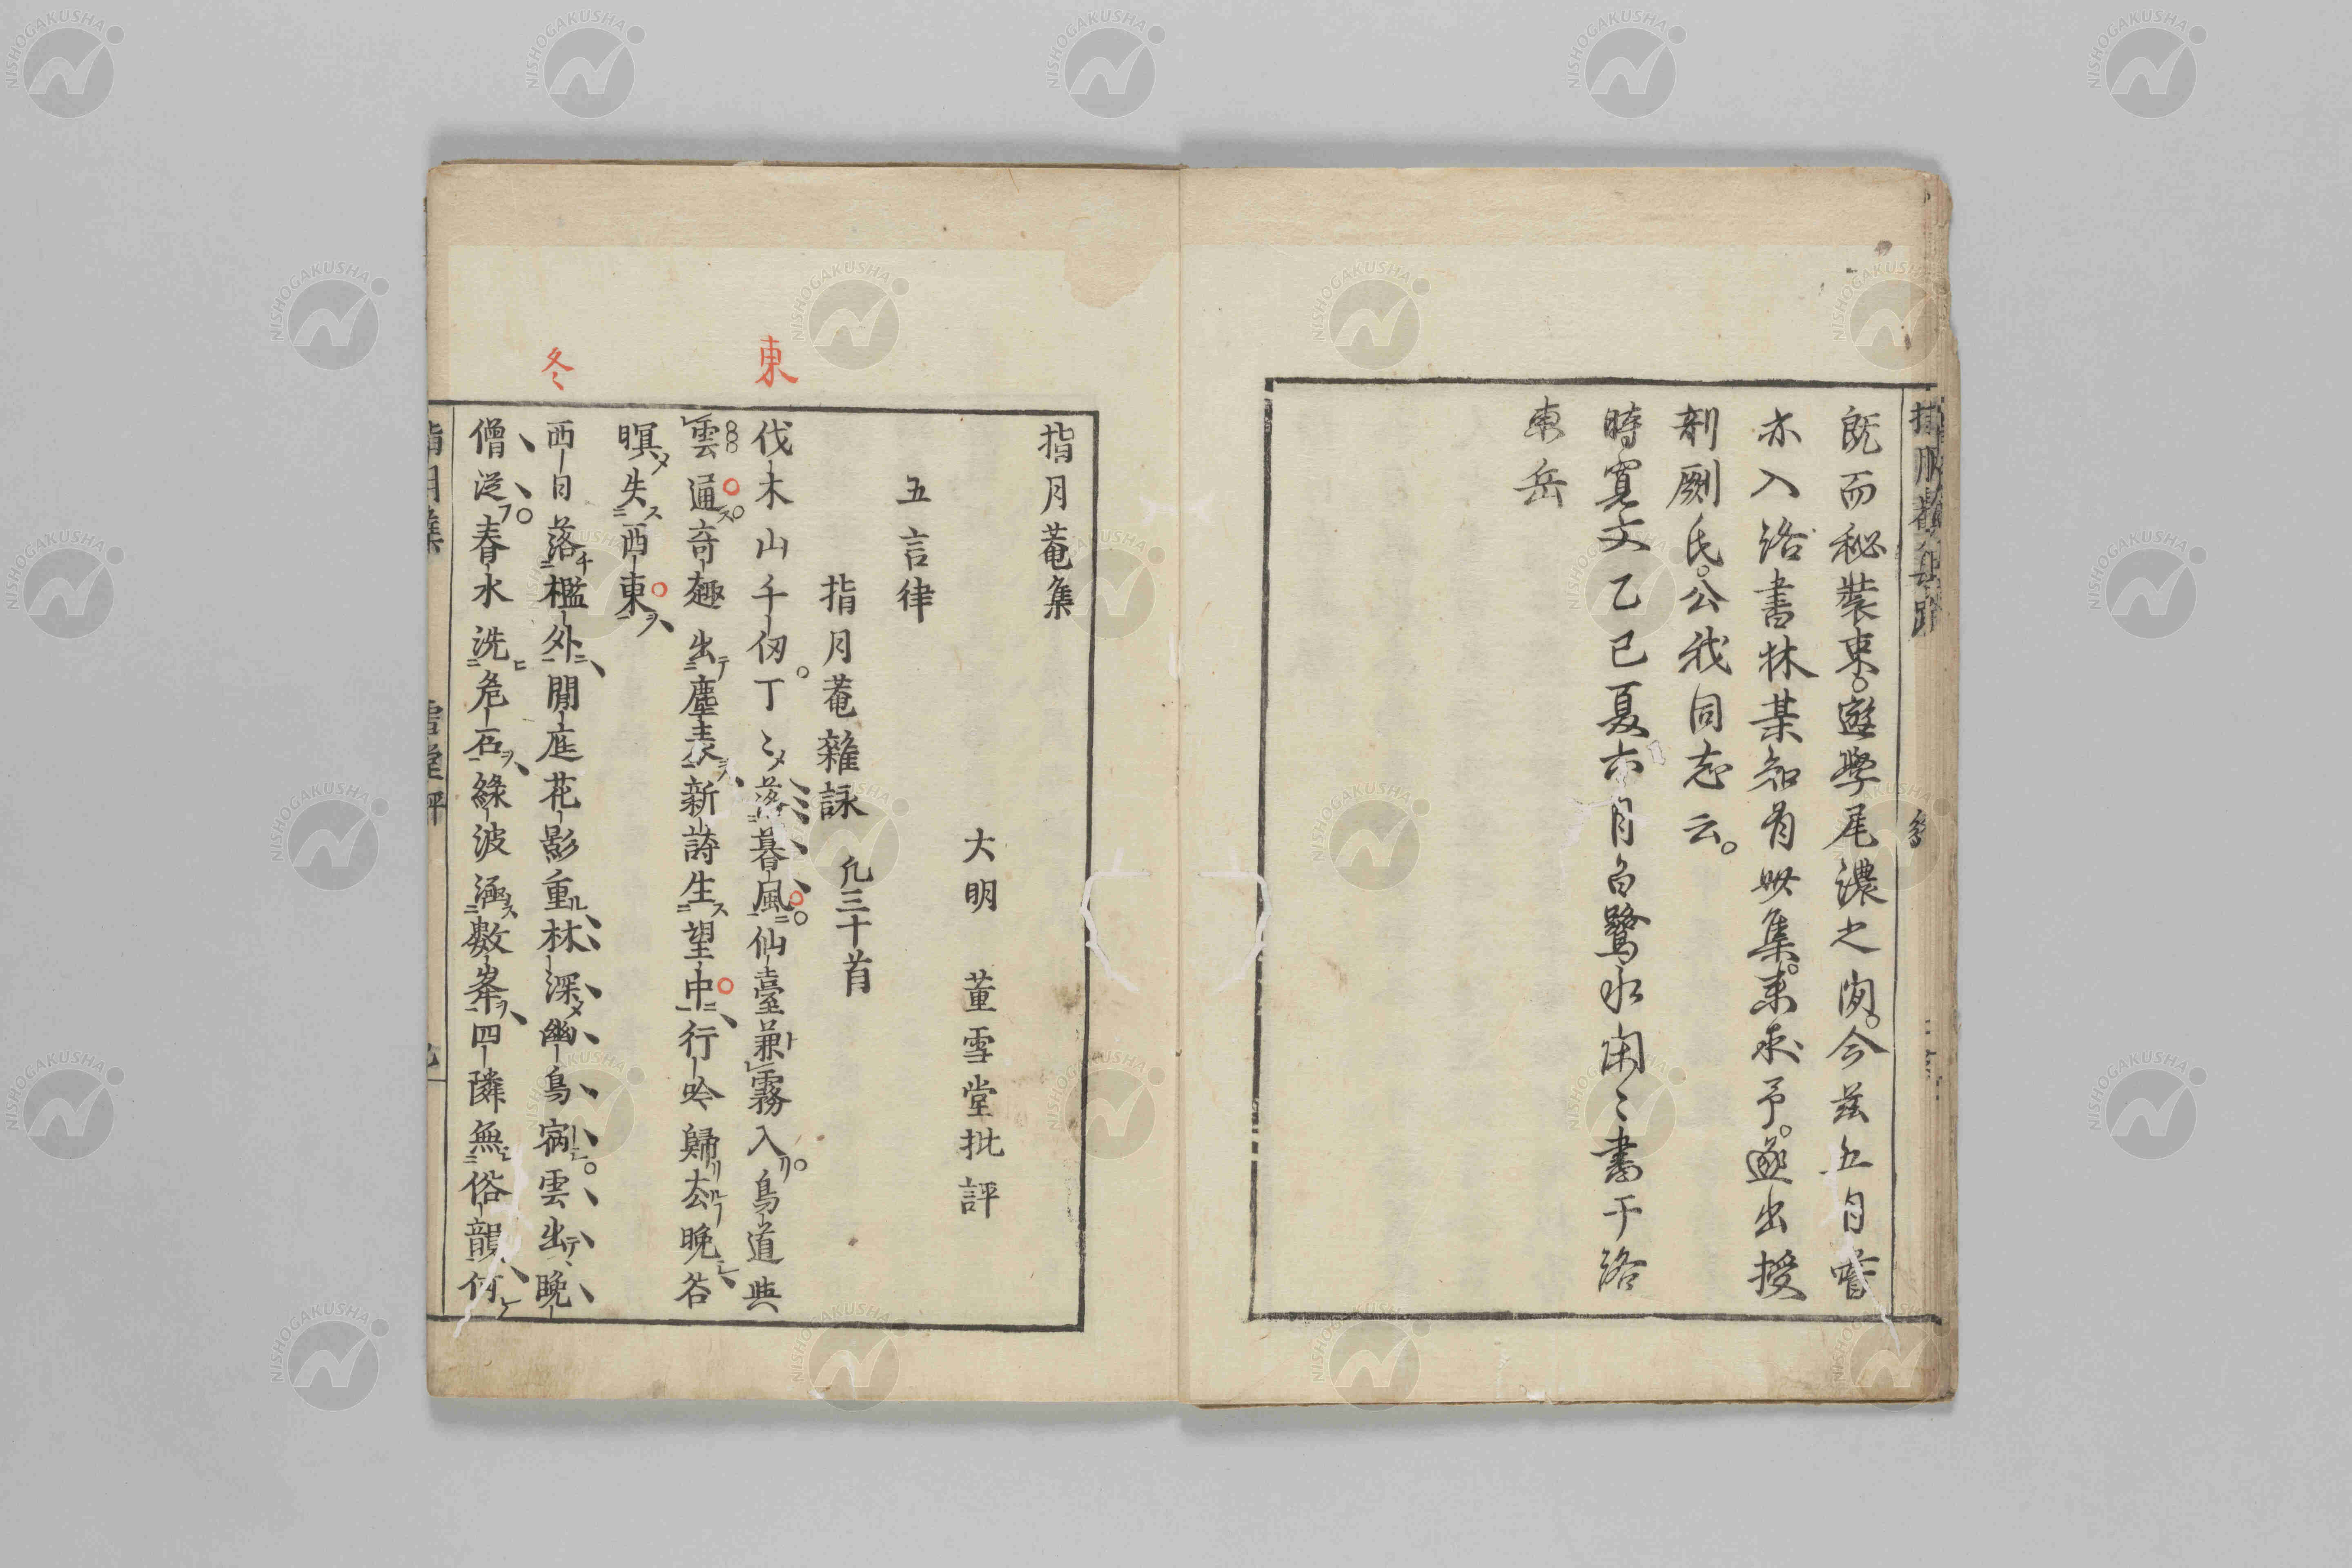 既而秘裝束遊學尾濃之間今茲五月嘗
亦入洛書林某知有此集來求予遂出授
剞劂氏公我同志云
時寬文乙巳夏六月白鷺水閑〻書于洛
東岳
指月菴集
大明 董雪堂批評
五言律
指月菴雜詠 凡三十首
東
伐木山千仞丁〻落暮風仙臺兼霧入鳥道與
雲通奇趣出塵表新詩生望中行吟歸去晚谷
暝失西東
冬
西日落檻外閒庭花影重林深幽鳥宿雲出晚
僧從春水洗危石綠波涵數峯四隣無俗韻何
指月集 雪堂評
NISHOGAKUSHA